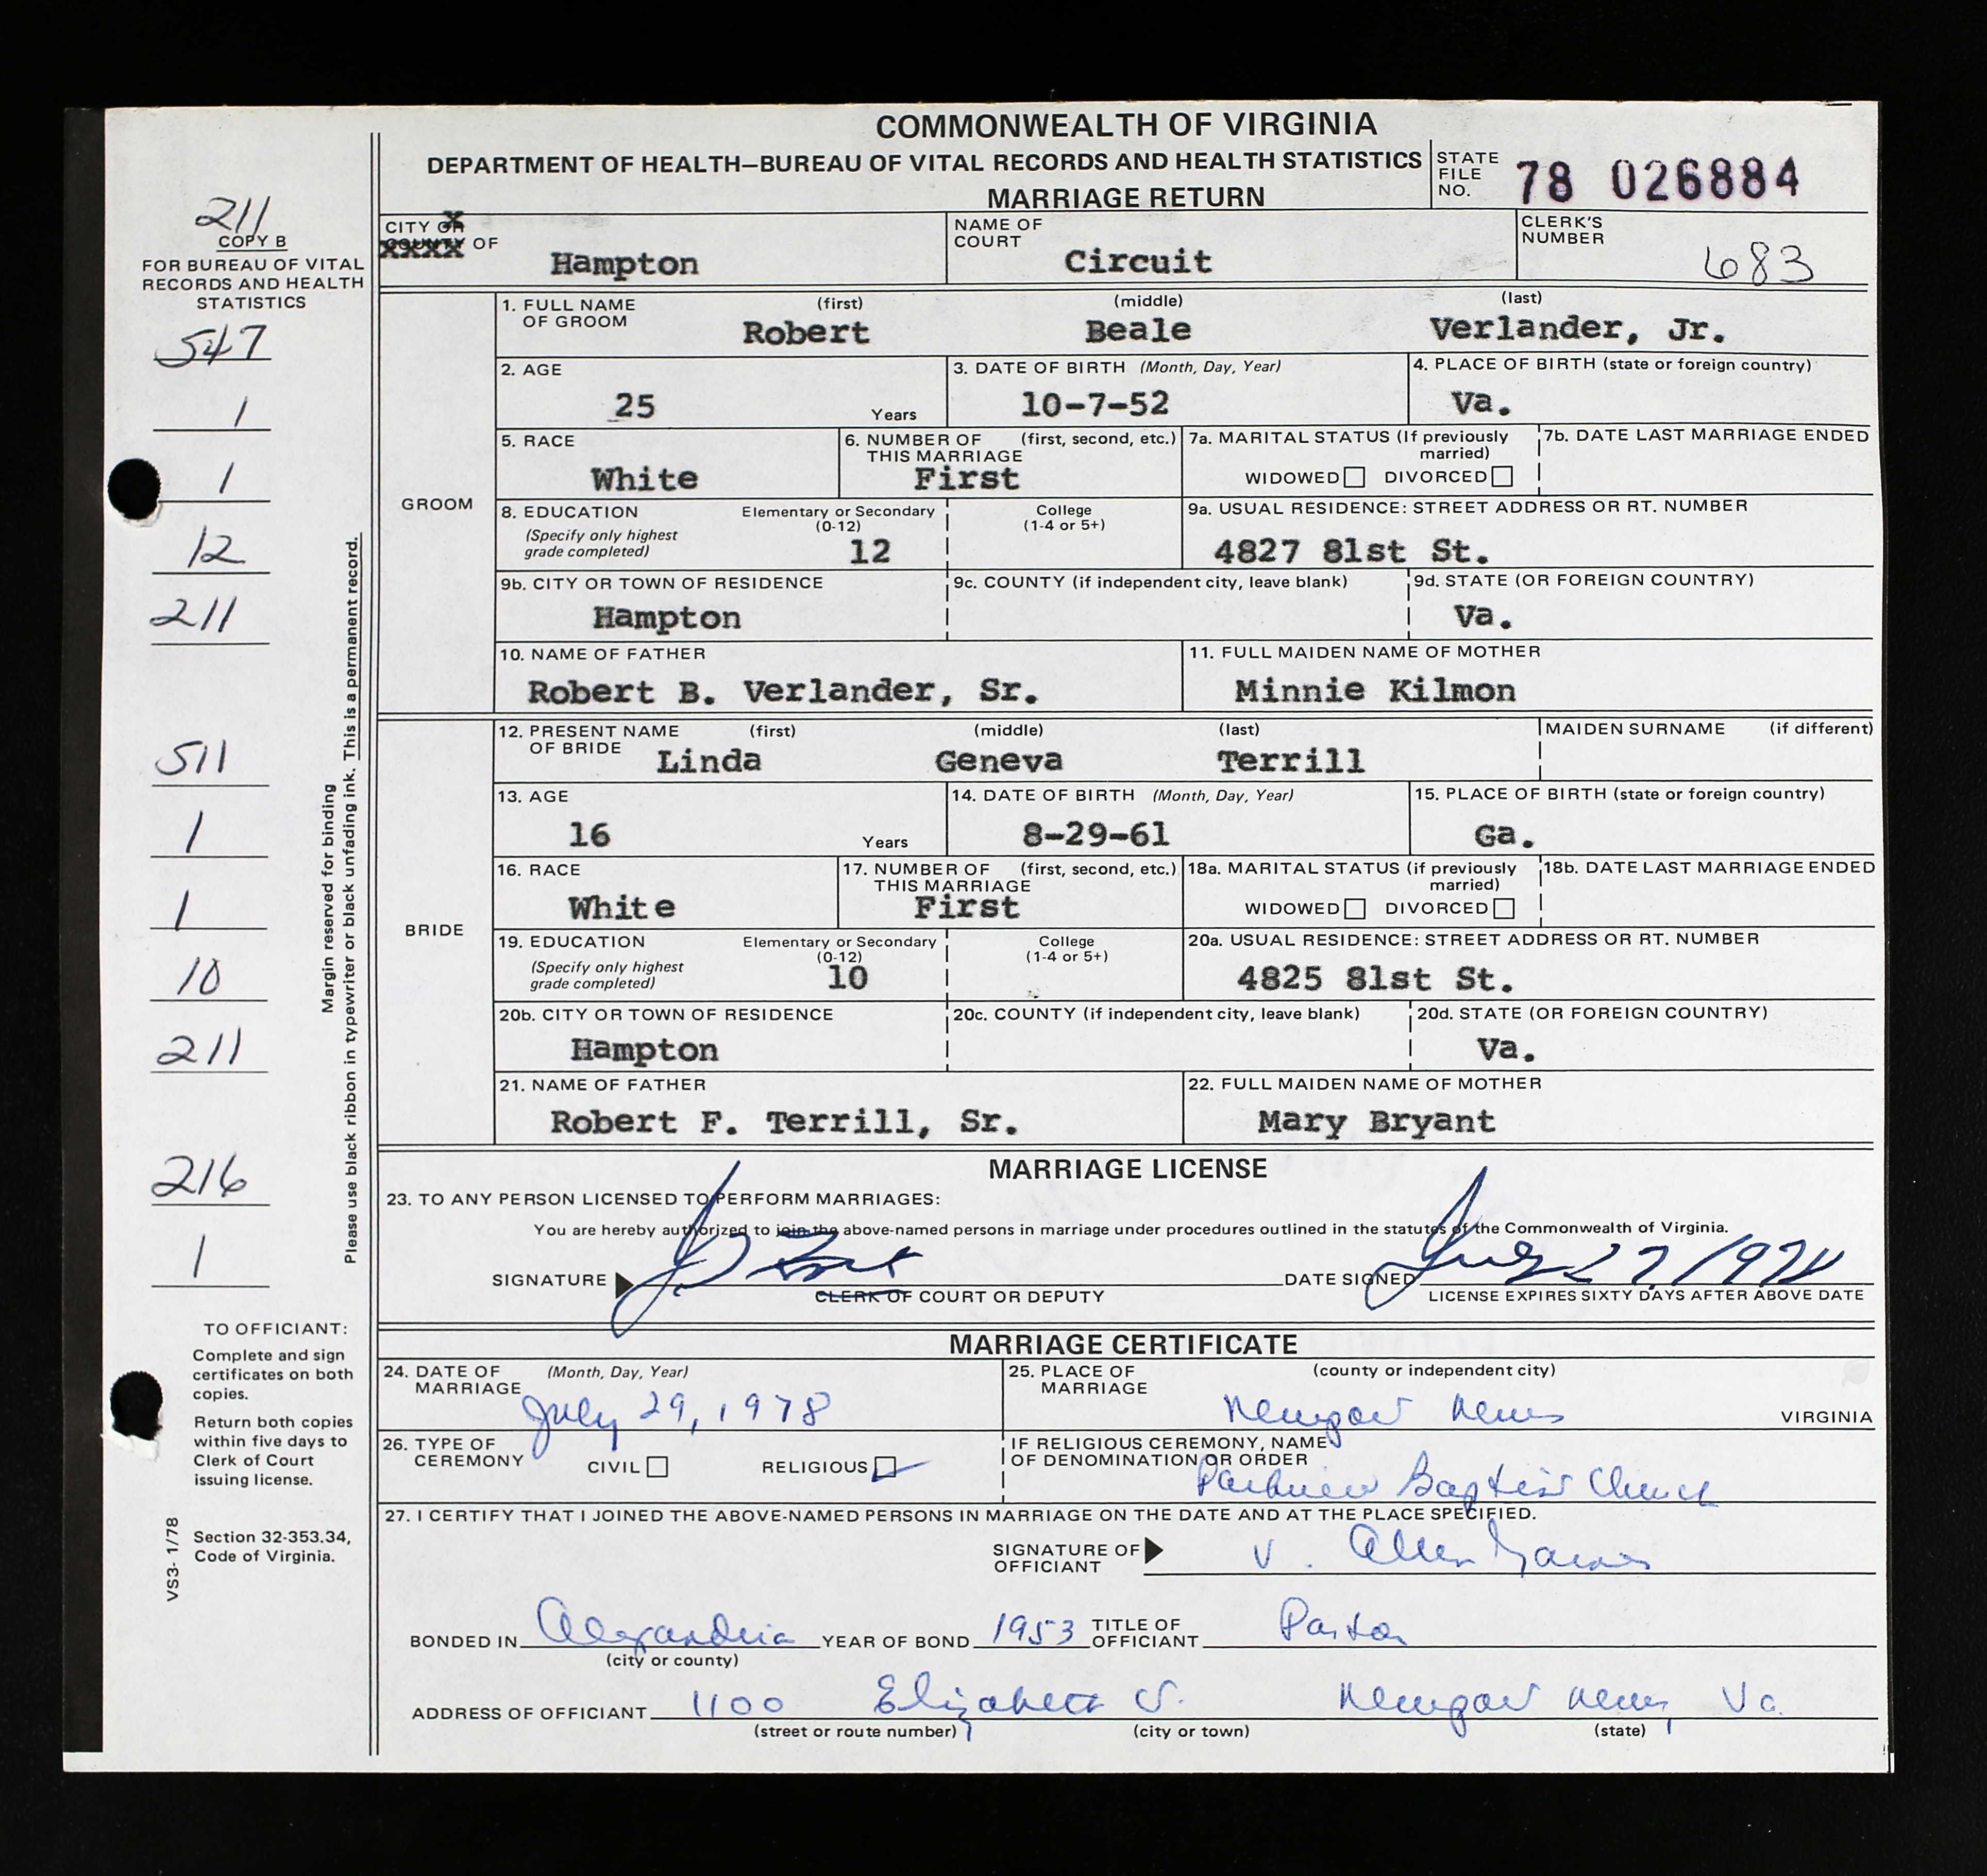 COMMONWEALTH OF VIRGINIA
DEPARTMENT OF HEALTH—BUREAU OF VITAL RECORDS AND HEALTH STATISTICS
MARRIAGE RETURN
STATE FILE NO. 78 026884
211
COPY B
FOR BUREAU OF VITAL
RECORDS AND HEALTH
STATISTICS
547
1
1
12
211
511
1
1
10
211
216
1
Margin reserved for binding
Please use black ribbon in typewriter or black unfading ink. This is a permanent record.
TO OFFICIANT:
Complete and sign
certificates on both
copies.
Return both copies
within five days to
Clerk of Court
issuing license.
Section 32-353.34,
Code of Virginia.
VS3- 1/78
CITY OR COUNTY OF Hampton
NAME OF COURT Circuit
CLERK'S NUMBER 683
GROOM
1. FULL NAME OF GROOM (first) (middle) (last)
Robert Beale Verlander, Jr.
2. AGE 25 Years
3. DATE OF BIRTH (Month, Day, Year) 10-7-52
4. PLACE OF BIRTH (state or foreign country) Va.
5. RACE White
6. NUMBER OF THIS MARRIAGE (first, second, etc.) First
7a. MARITAL STATUS (If previously married) WIDOWED DIVORCED
7b. DATE LAST MARRIAGE ENDED
8. EDUCATION (Specify only highest grade completed) Elementary or Secondary (0-12) 12 College (1-4 or 5+)
9a. USUAL RESIDENCE: STREET ADDRESS OR RT. NUMBER 4827 81st St.
9b. CITY OR TOWN OF RESIDENCE Hampton
9c. COUNTY (if independent city, leave blank)
9d. STATE (OR FOREIGN COUNTRY) Va.
10. NAME OF FATHER Robert B. Verlander, Sr.
11. FULL MAIDEN NAME OF MOTHER Minnie Kilmon
BRIDE
12. PRESENT NAME OF BRIDE (first) (middle) (last) MAIDEN SURNAME (if different)
Linda Geneva Terrill
13. AGE 16 Years
14. DATE OF BIRTH (Month, Day, Year) 8-29-61
15. PLACE OF BIRTH (state or foreign country) Ga.
16. RACE White
17. NUMBER OF THIS MARRIAGE (first, second, etc.) First
18a. MARITAL STATUS (if previously married) WIDOWED DIVORCED
18b. DATE LAST MARRIAGE ENDED
19. EDUCATION (Specify only highest grade completed) Elementary or Secondary (0-12) 10 College (1-4 or 5+)
20a. USUAL RESIDENCE: STREET ADDRESS OR RT. NUMBER 4825 81st St.
20b. CITY OR TOWN OF RESIDENCE Hampton
20c. COUNTY (if independent city, leave blank)
20d. STATE (OR FOREIGN COUNTRY) Va.
21. NAME OF FATHER Robert F. Terrill, Sr.
22. FULL MAIDEN NAME OF MOTHER Mary Bryant
MARRIAGE LICENSE
23. TO ANY PERSON LICENSED TO PERFORM MARRIAGES:
You are hereby authorized to join the above-named persons in marriage under procedures outlined in the statutes of the Commonwealth of Virginia.
SIGNATURE DATE SIGNED July 27, 1978
CLERK OF COURT OR DEPUTY LICENSE EXPIRES SIXTY DAYS AFTER ABOVE DATE
MARRIAGE CERTIFICATE
24. DATE OF MARRIAGE (Month, Day, Year) July 29, 1978
25. PLACE OF MARRIAGE (county or independent city) Newport News VIRGINIA
26. TYPE OF CEREMONY CIVIL RELIGIOUS
IF RELIGIOUS CEREMONY, NAME OF DENOMINATION OR ORDER Parkview Baptist Church
27. I CERTIFY THAT I JOINED THE ABOVE-NAMED PERSONS IN MARRIAGE ON THE DATE AND AT THE PLACE SPECIFIED.
SIGNATURE OF OFFICIANT V. Allen Gaines
BONDED IN Alexandria YEAR OF BOND 1953 TITLE OF OFFICIANT Pastor
(city or county)
ADDRESS OF OFFICIANT 1100 Elizabeth Newport News, Va.
(street or route number) (city or town) (state)